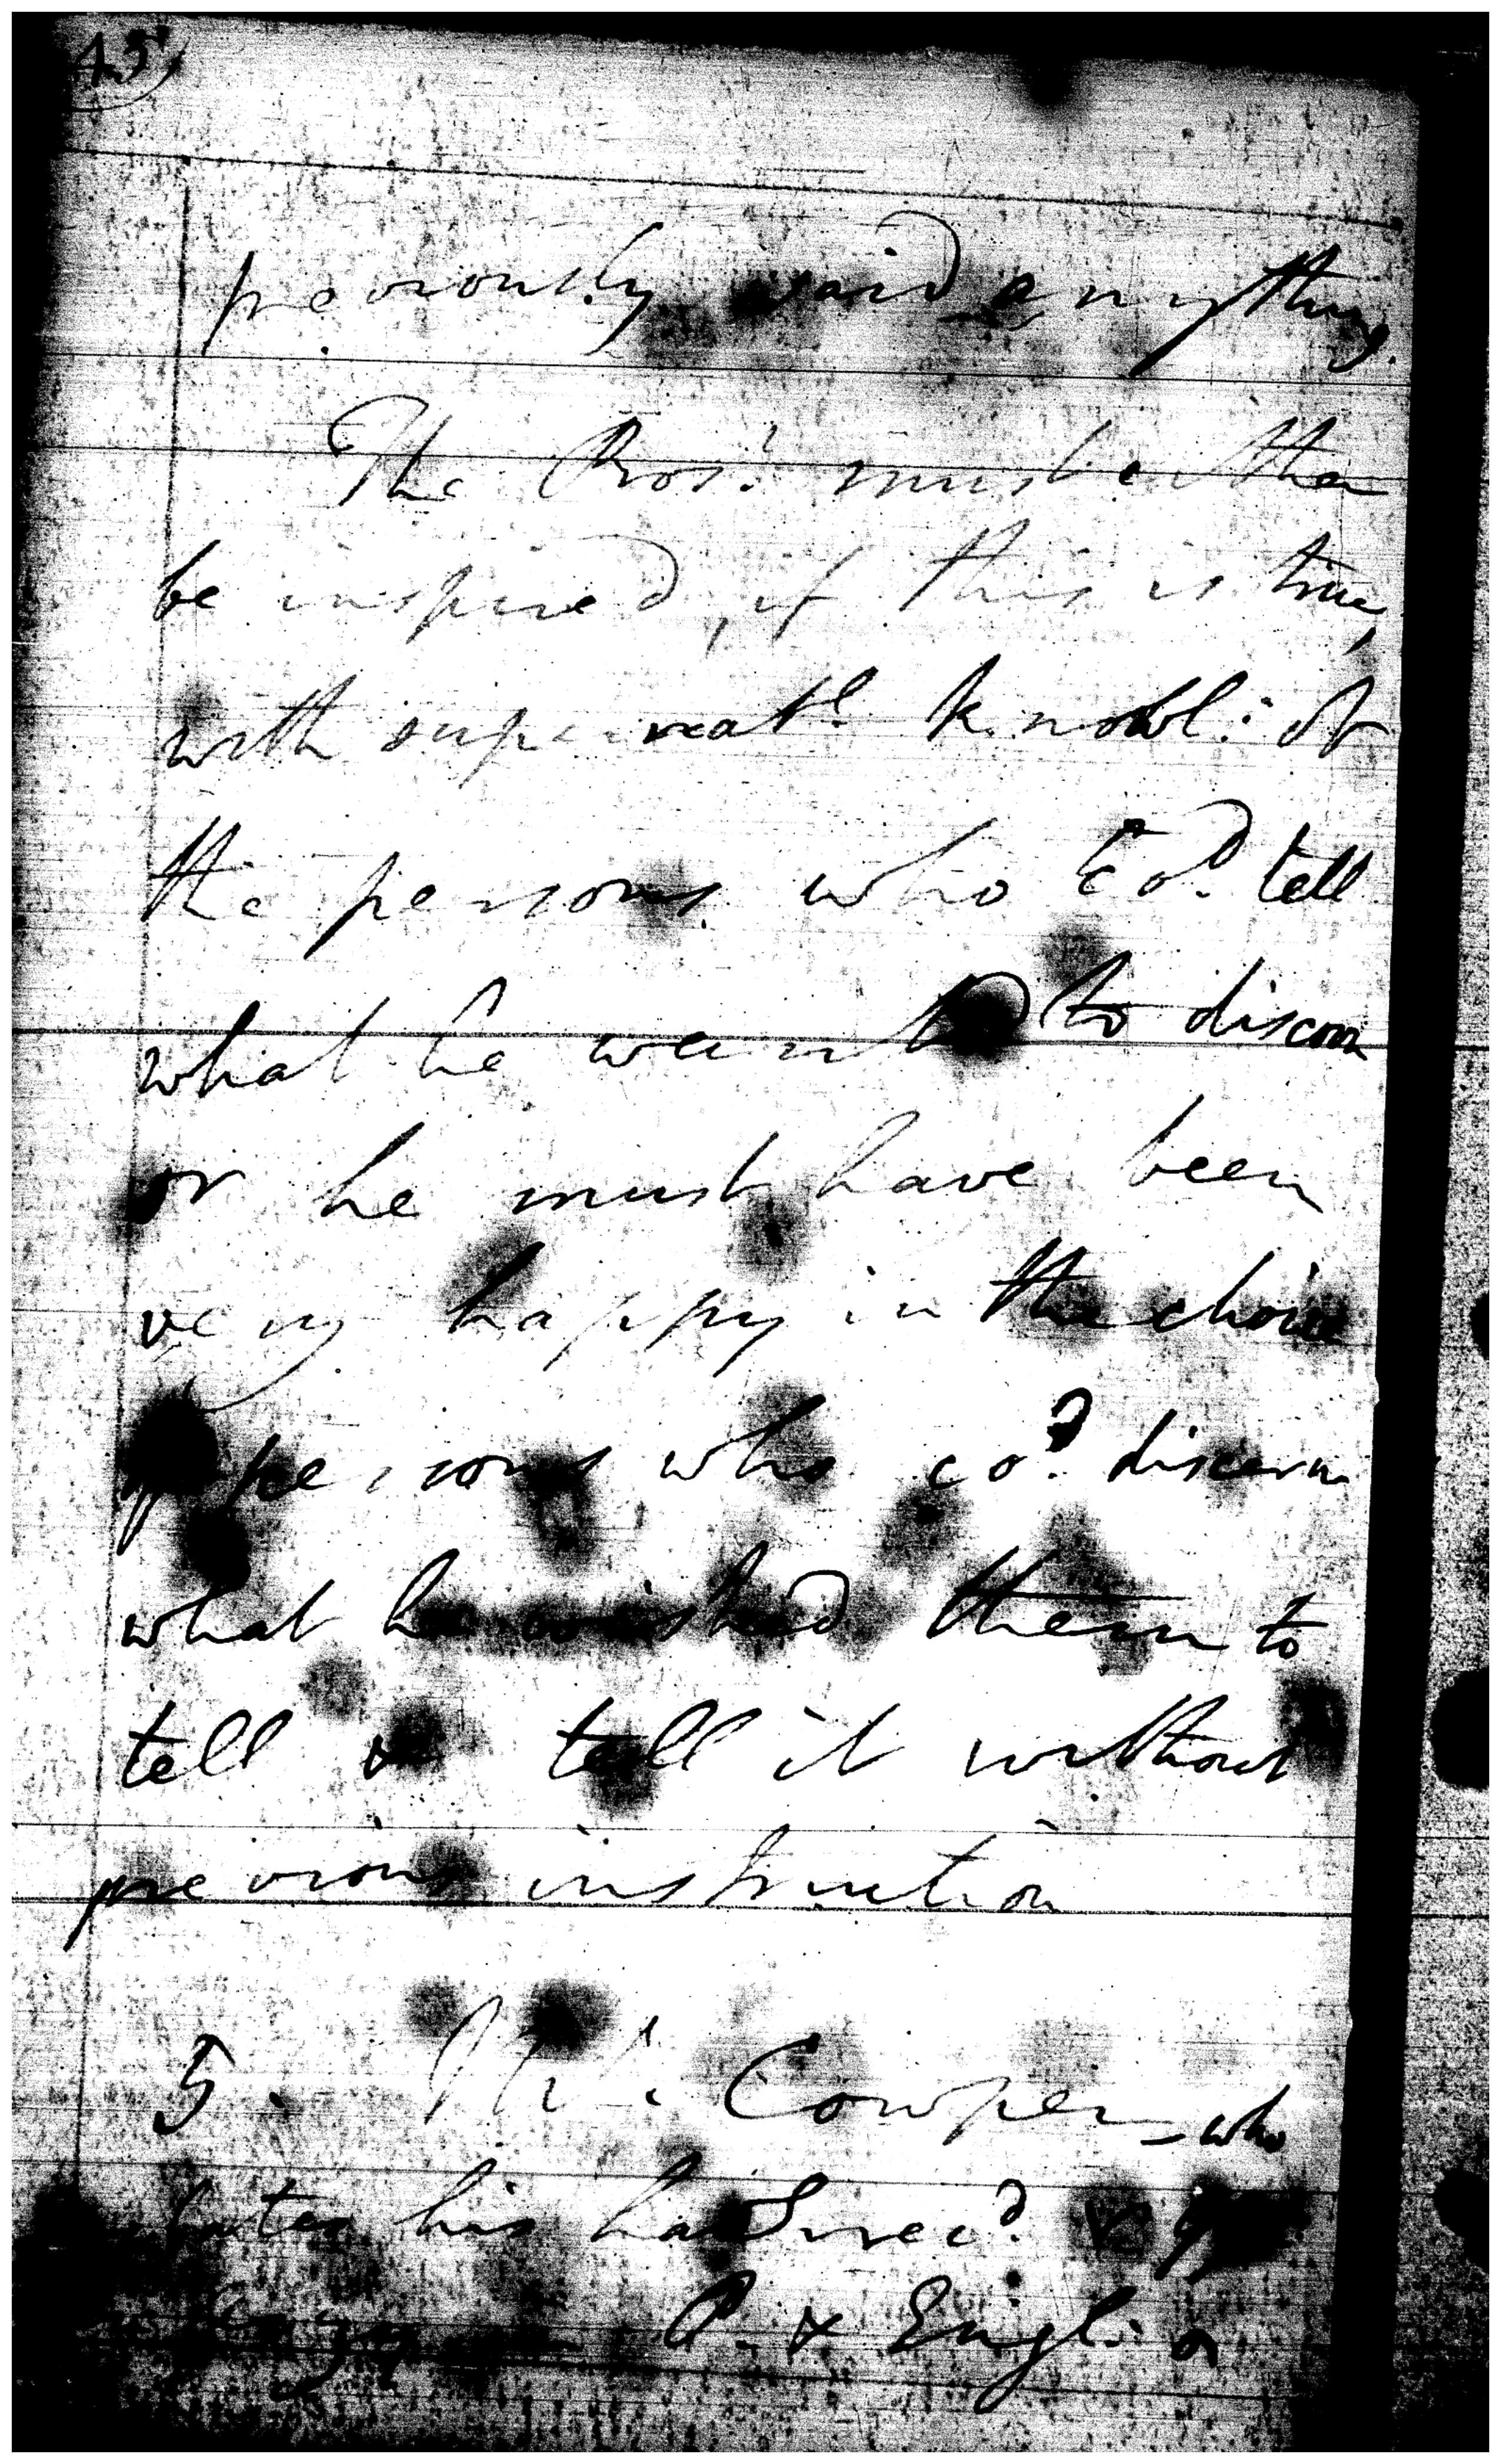 45
previously said anything.
The Pros.r must either
be inspired, if this is true,
with supernatl. knowl: of
the persons who co.d tell
what he wanted to discover
or he must have been
very happy in the choice
of persons who co.d discern
what he wished them to
tell & tell it without
previous instruction
5. Mr: Cowper _ who
states his ha rec.d
P. & Engl: or